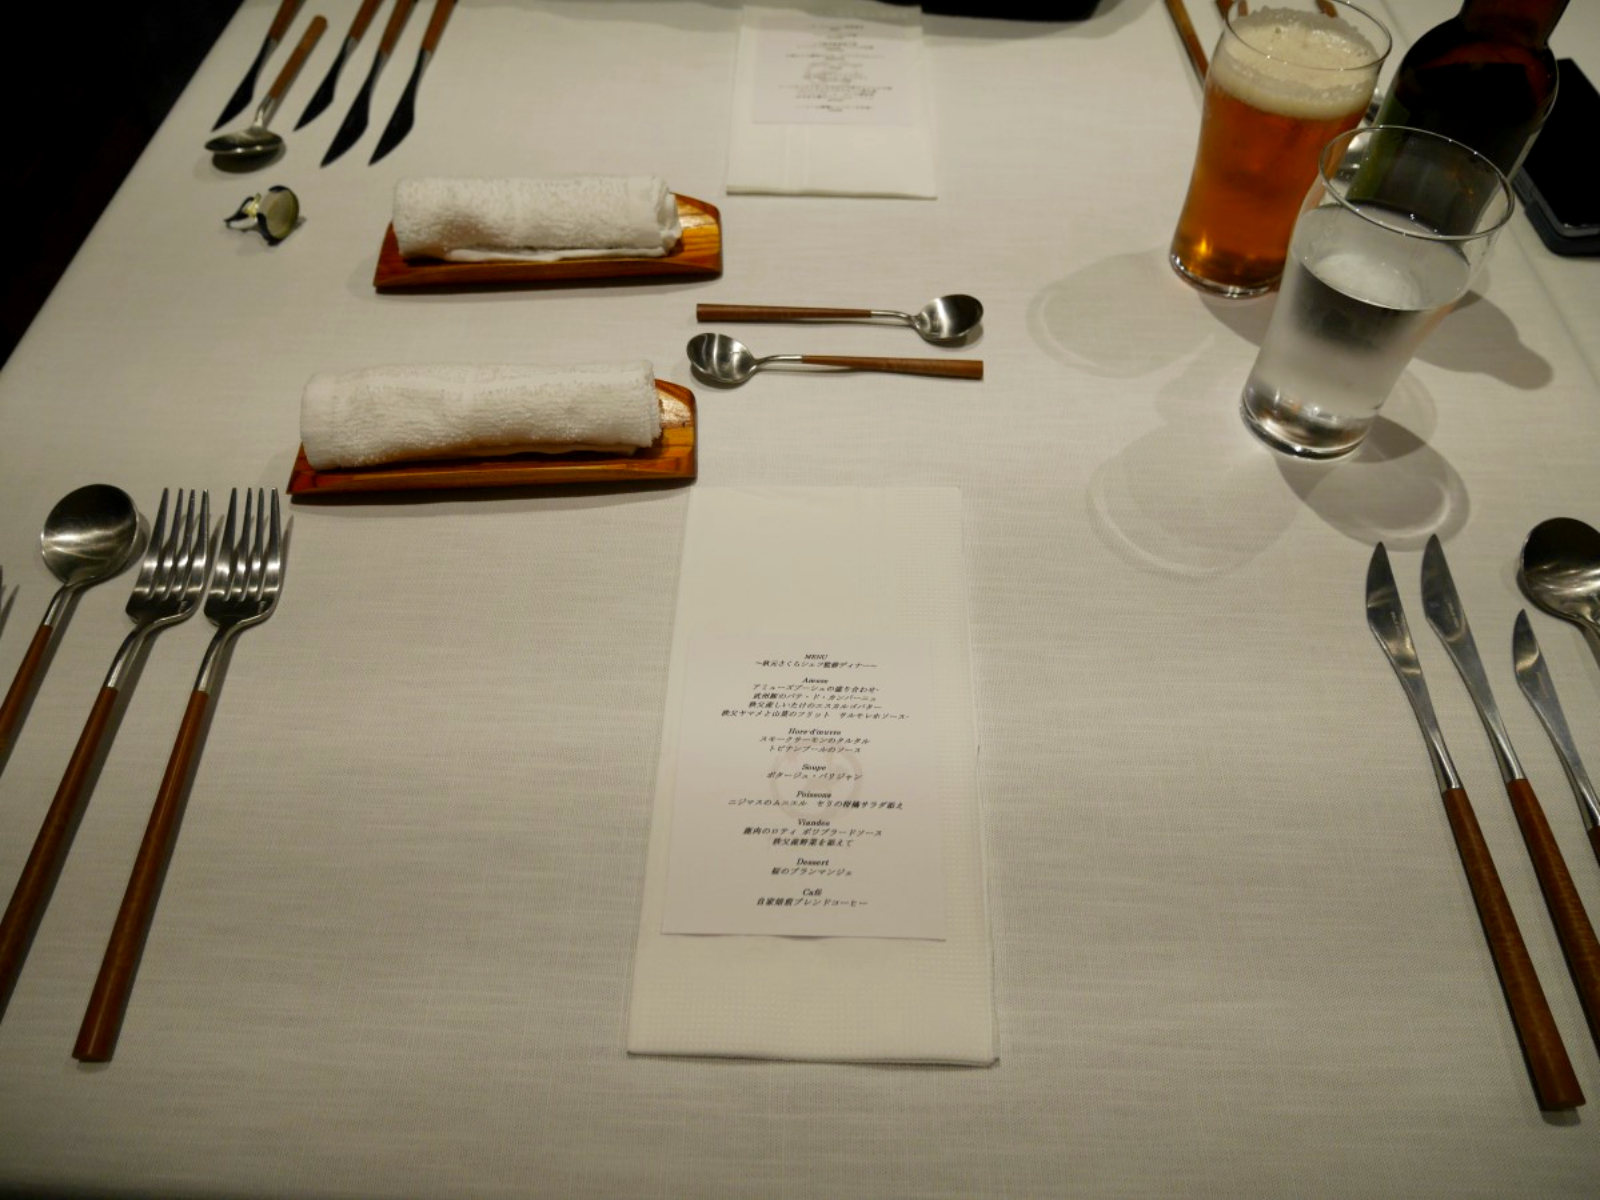 MENU
～秋元さくらシェフ監修ディナー～
Amuse
アミューズブーシュの盛り合わせ
武州豚のパテ・ド・カンパーニュ
秩父産しいたけのエスカルゴバター
秩父ヤマメと山菜のフリット サルモレホソース
Hors-d'œuvre
スモークサーモンのタルタル
トピナンブールのソース
Soupe
ポタージュ・パリジャン
Poissons
ニジマスのムニエル セリの柑橘サラダ添え
Viandes
鹿肉のロティ ポワブラードソース
秩父産野菜を添えて
Dessert
桜のブランマンジェ
Café
自家焙煎ブレンドコーヒー